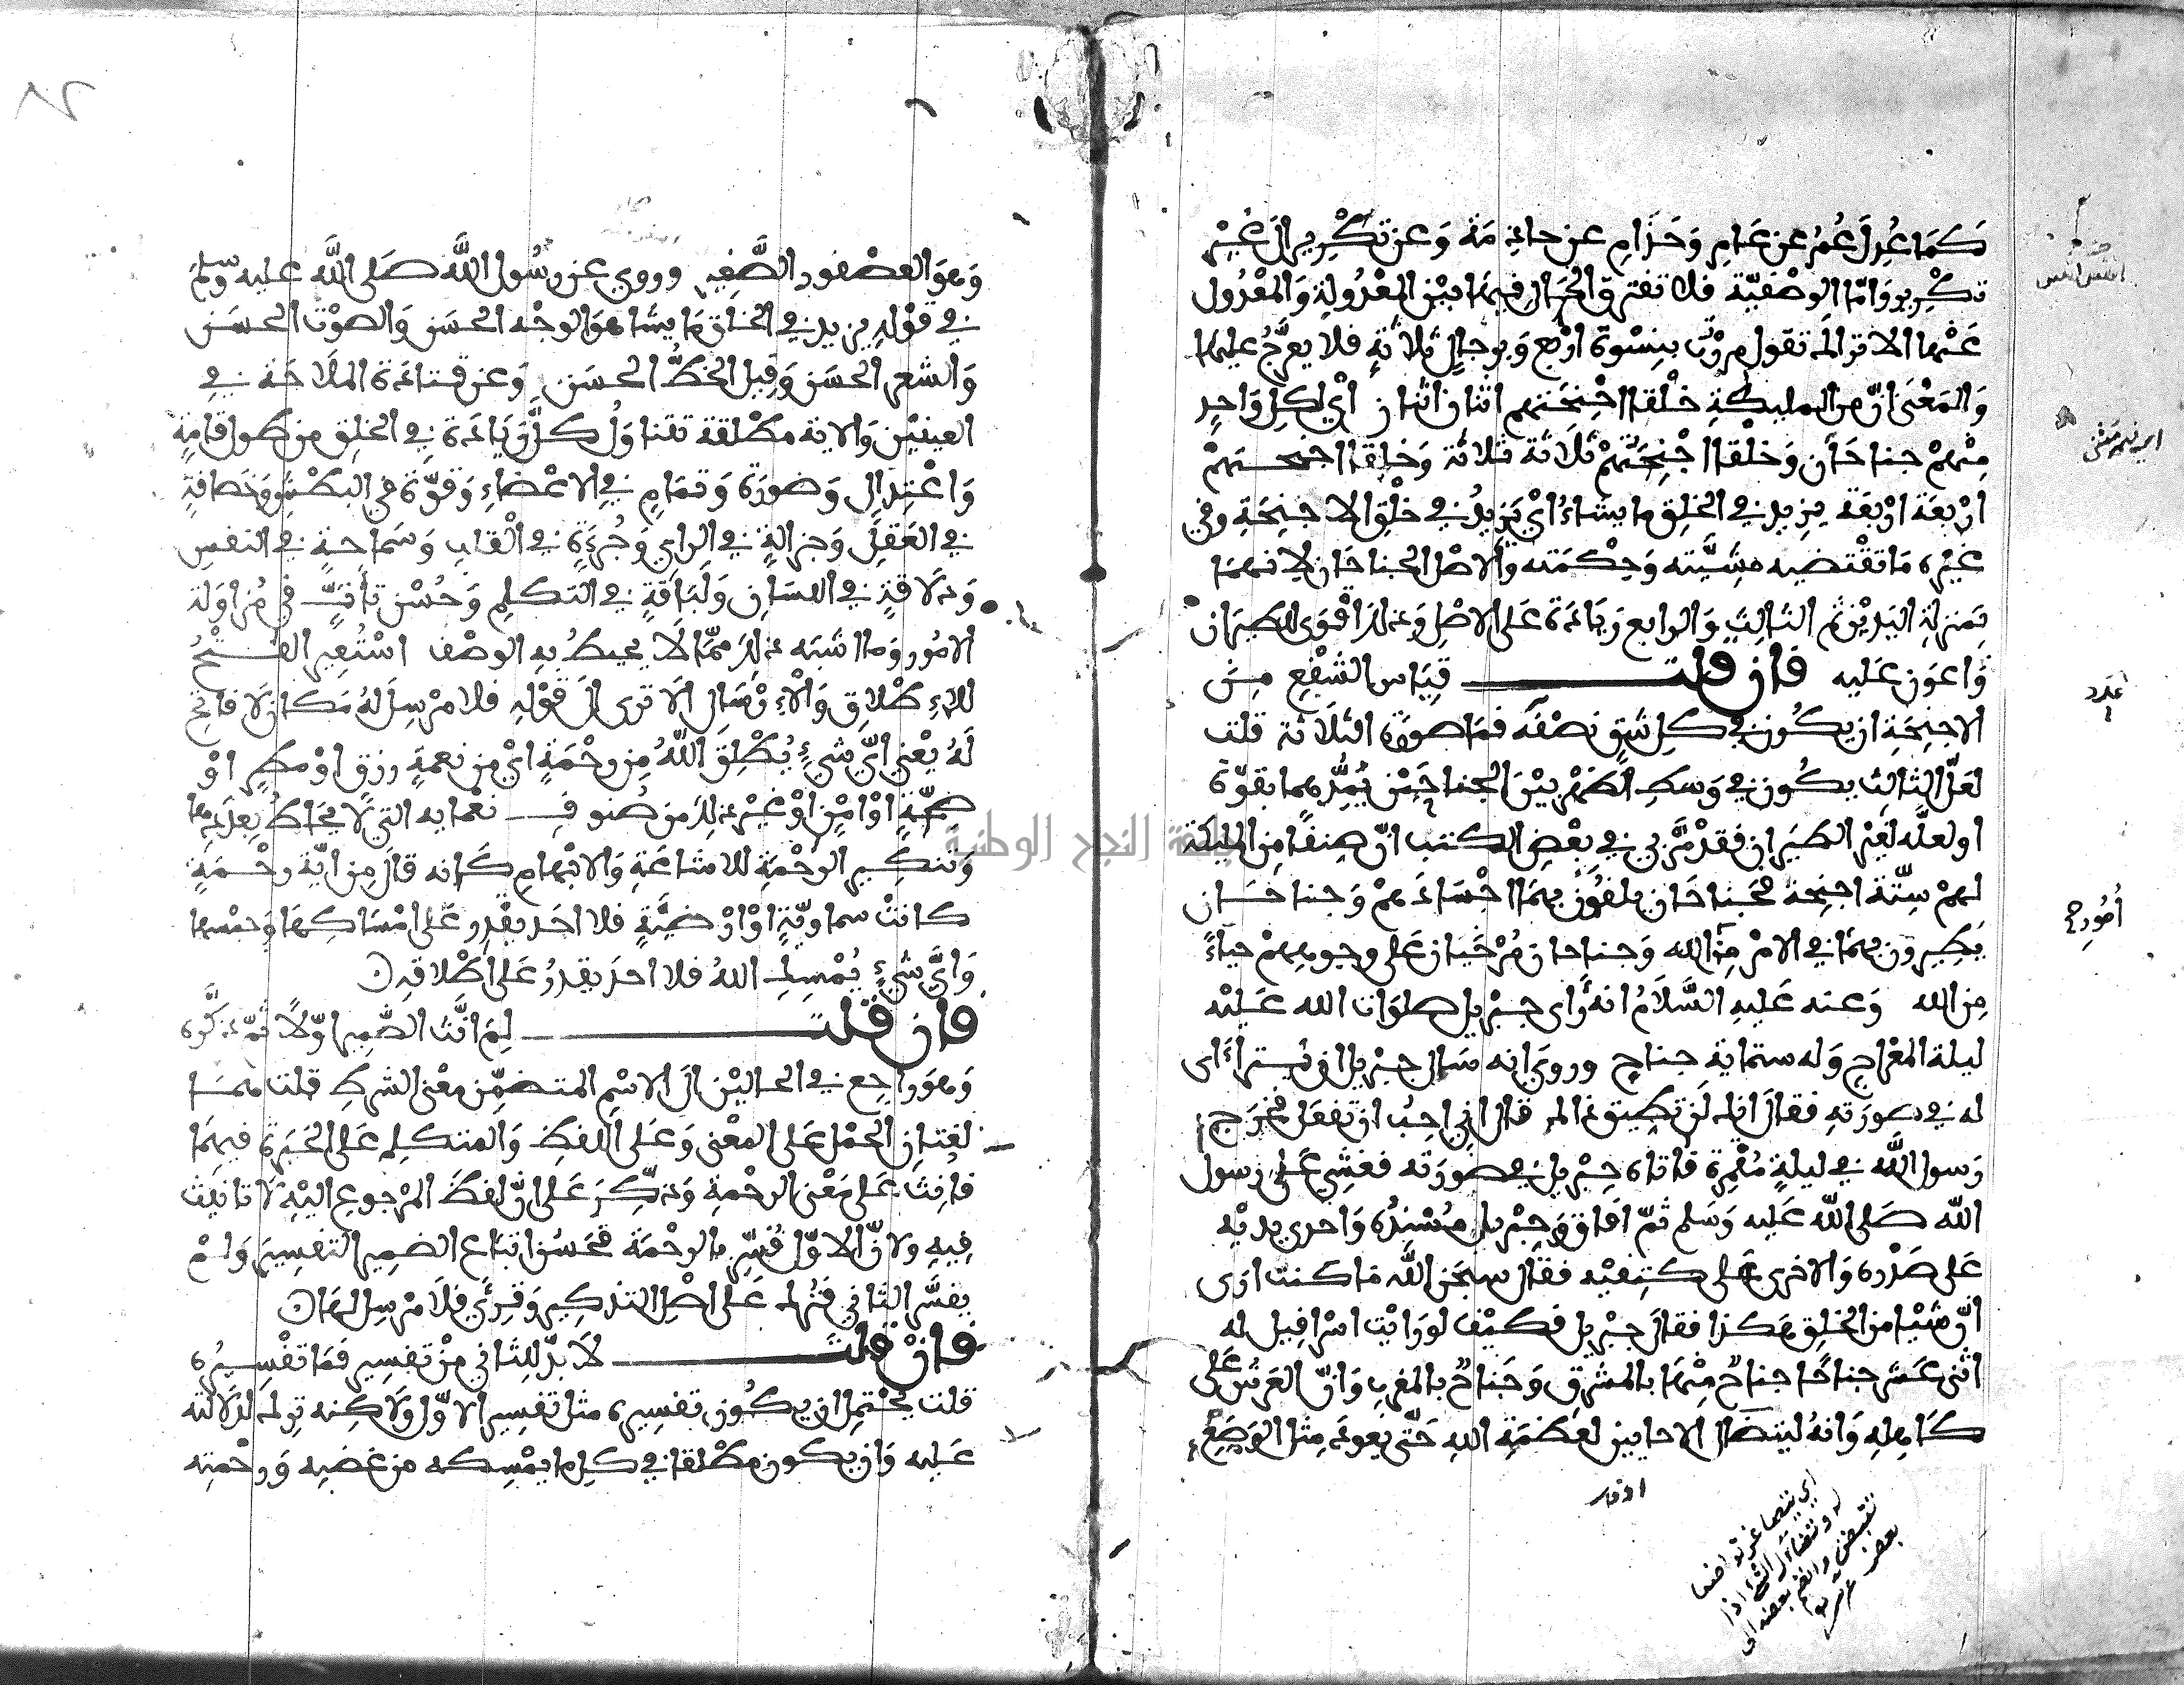 كَمَا عُدِلَ عُمَرُ عن عَامِرٍ وَحَذَامِ عن حاذِمَة وَعن تكْرِير الَى غَيْر
تكْرِير وَامّا الوصْفيّة فلا تفترق الحَال فيهَا بيْن المعْدُولةِ وَالمعْدُول
عَنْها الا تراكَ تقول مررْت بنِسْوة ارْبع وَبرجالٍ ثلاثةٍ فلا يعرَّجُ عليها
وَالمَعْنَى انّ من المليكةِ خلْقا اجْنِحَتهم اثنان اثنان اىْ لكل وَاحِدٍ
مِنْهمْ جناحَان وَخلْقا اجْنِحَتُهمْ ثَلَاثة ثلاثة وَخلقا اجنحتهمْ
ارْبعَة ارْبعَة يزيد في الخلق ما يشاءُ اىْ يَزيدُ في خلْق الاجنِحَةِ وفي
غيْره مَا تقْتضيه مشِيَّته وَحِكْمَته وَالاصْل الجناحَان لانهمَا
بمَنزلةِ اليَديْن ثم الثالِث وَالرابع زيَادَة عَلى الاصْل وَذلك اقْوَى للطيرَان
وَاعوَن عَليه فان قلت قِيَاس الشفْعِ مِنَ
الاجنِحَةِ ان يكُون في كل شِقٍّ نصْفه فمَا صورَة الثلَاثة قلت
لعَلّ الثالث يكُون في وَسطِ الظهْر بيْن الجناحَيْن يُمِدُّهما بقوّة
او لعلّه لغَيْر الطيَرَان فقدْ مَرَّ بي في بعْضِ الكتب انّ صِنفًا مِن المليكة
لهمْ سِتّة اجنِحَة فجَناحَان يلفُّونَ بهمَا اجْسَادَهمْ وَجناحَان
يَطِيرون بهمَا في الامْر مِنَ الله وَجناحان مُرْخَيان عَلى وجوههمْ حيَاءً
مِن الله وَعنه عَليهِ السَّلَامُ انه رَأى جبْريل صلوَات الله عَليْه
ليلة المعْراج وَله ستماية جناح وروىَ انه سَال جبْريل ان يترَاءَاى
له في صورَتهِ فقالَ انك لن تطِيق ذالك قال اني احِبُ ان تفعَل فخرَج
رَسول اللَّه في ليلةٍ مُقْمِرة فاتاه جِبْريل في صورَته فغشِيَ عَلى رَسول
الله صَلى اللَّه عَليه وَسَلم ثمّ افاق وَجِبْريل مسْنِدُه وَاحدى يديْه
عَلى صَدْره وَالاخرى عَلى كتِفيْه فقال سبحَن اللَّه مَا كنت ارَى
انّ شيْيا من الخلق هكذا فقالَ جبْريل فكيْف لو رَايْت اسْرافيل له
اثنى عَشر جناحًا جناحٌ مِنْها بالمشرق وَجَناحٌ بالمغرب وَانّ العَرْش عَلى
كَاهِلهِ وَانهُ ليَتضَال الاحايين لعَظمَةِ اللهِ حَتّى يَعودَ مِثل الوَصَع
وَهوَ العصْفور الصَّغير وروي عن رسُول اللَّه صَلى اللَّه عليه وسَلم
في قوْلهِ يزيد في الخلق ما يشا هوَ الوجْه الحسَن وَالصوْت الحسَن
وَالشعر الحسَن وَقيل الخطُّ الحسَن وَعن قتادَة الملَاحَة في
العينيْن وَالاية مطْلقة تتناوَلُ كلَّ زيَادَة في الخلق من طول قامَةٍ
وَاعْتِدالِ وَصورَة وَتمَامٍ في الاعْضاءِ وَقوَّة في البطْش وَحصَافةٍ
في العَقل وَجزالةٍ في الراي وَجُرءَةٍ في الْقلب وَسَمَاحةٍ في النفس
وَذلَاقةٍ في اللسَان وَلَبَاقةٍ في التكلم وَحُسْن تأَتٍّ في مُزاوَلة
الامُور وَما اشبَه ذلك ممَّا لَا يحيطُ بهِ الوصْف اسْتُعِير الفتْحُ
للاِطْلَاق وَالْاِرْسَال الَا ترى الَى قوْلهِ فلا مرْسِلَ لهُ مَكان لَا فاتحَ
لَهُ يعْني اىَّ شيْءٍ يُطْلِقِ اللَّهُ مِن رحْمَةٍ اىْ مِن نعمَةٍ رزق اوْ مطرٍ اوْ
صِحّةٍ اوْ امْنٍ اوْ غيْر ذلك من صُنوف نعْمايه التي لا يحَاطُ بعدَدها
وَتنكير الرحْمَة للاشاعَةِ وَالابْهام كَانه قالَ مِن ايّة رحْمَةٍ
كانتْ سماويّةٍ اوْ ارْضيَّةٍ فلا احَد يقْدِر عَلى امْسَاكِهَا وَحبْسها
وَايَّ شيْءٍ يُمْسِك اللهُ فلا احدَ يقدرُ عَلى اطْلاقهِ
فان قلت لِمَ انَّث الضَّمِير اوّلًا ثمّ ذكَّره
وَهوَ راجع في الحاليْن الَى الاسْم المتضمِّن معْنى الشرطِ قلت همَا
لغتان الحمْل عَلى المعْنى وَعَلى اللفظ وَالمتكلم عَلى الخيَرَة فيهمَا
فانِّث عَلى مَعْنى الرحْمةِ وَذكِّرَ عَلى انّ لفظَ المرْجوع اليْهِ لَا تانيث
فيهِ ولانّ الاوّل فُسِّر بالرحْمَة فحَسُن اتبَاع الضمِير التفسِيرَ وَلمْ
يفسَّر الثاني فتُرك عَلى اصْل التذكِير وَقرئ فلَا مرْسِل لهَا
فانْ قلت لَا بدّ للثاني مِنْ تفسِير فمَا تفْسِيرُه
قلت يحْتمِل ان يكُون تفسِيره مثل تفسِير الاوّل وَلَاكِنه ترِك لدلَالته
عَليه وَان يكون مطْلقا في كل ما يمْسِكه من غضبهِ وَرحْمته